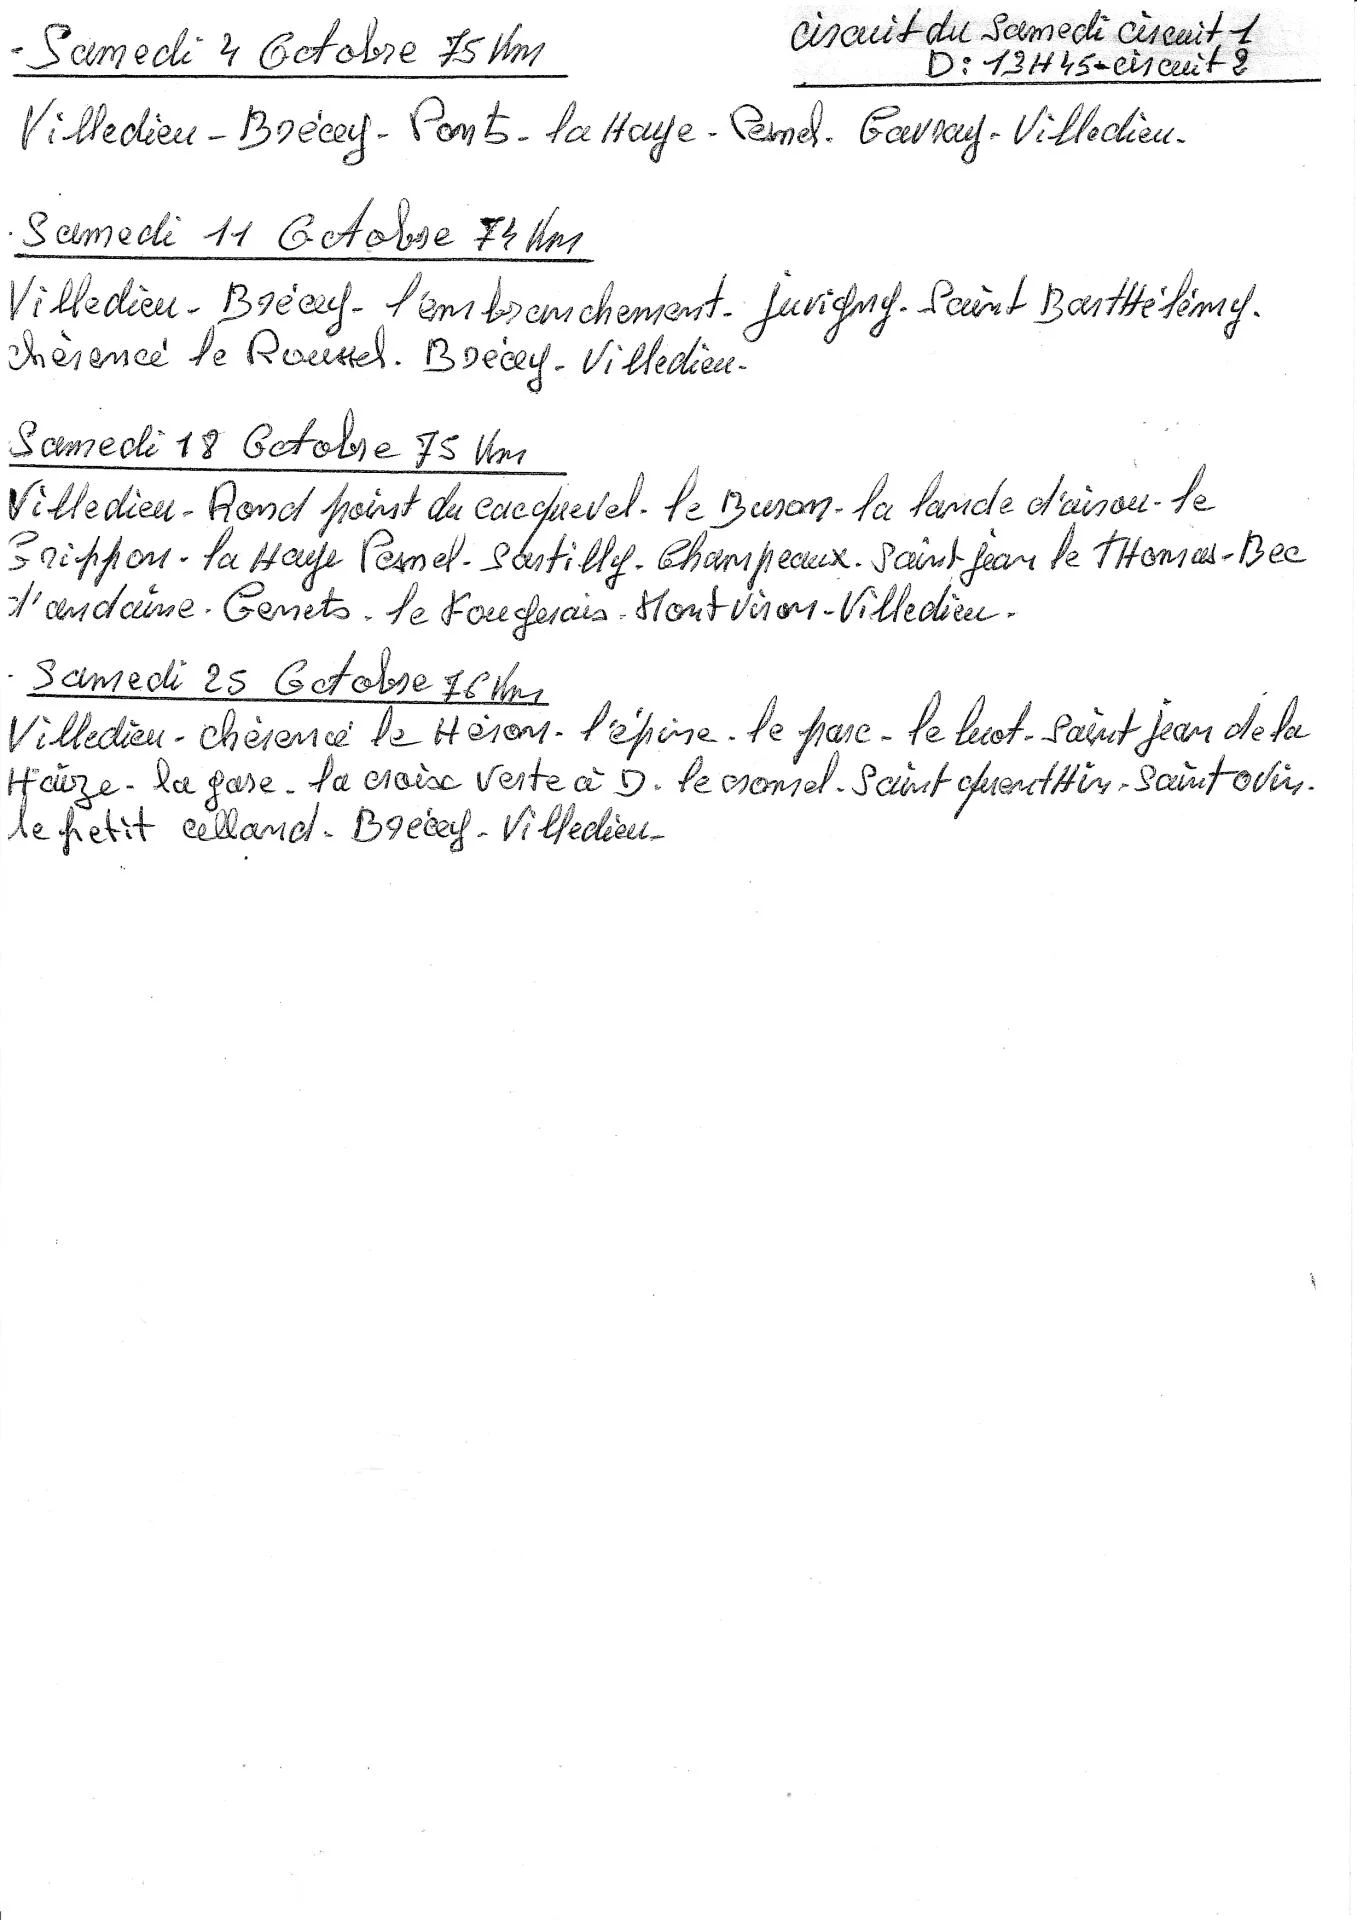 - Samedi 4 Octobre 75 Km
circuit du Samedi circuit 1
D: 13H45 - circuit 2
Villedieu - Brécey - Ponts - la Haye - Pesnel. Gavray - Villedieu.
. Samedi 11 Octobre 74 Km
Villedieu - Brécey - l'embranchement - juvigny. Saint Barthélémy.
chèrencé le Roussel. Brécey - Villedieu -
Samedi 18 Octobre 75 Km
Villedieu - Rond point du cacquevel - le Buson - la lande d'airou - le
Grippon - la Haye Pesnel - Sartilly - Champeaux. Saint jean le THomas - Bec
d'andaine. Genets. le Fougerais - Montviron - Villedieu.
. Samedi 25 Octobre 76 Km
Villedieu - chèrencé le Héron - l'épine - le parc - le luot - Saint jean de la
Haize - la gare - la croix verte à D. le cromel - Saint quentHin - Saint ovin.
le petit celland - Brécey - Villedieu -